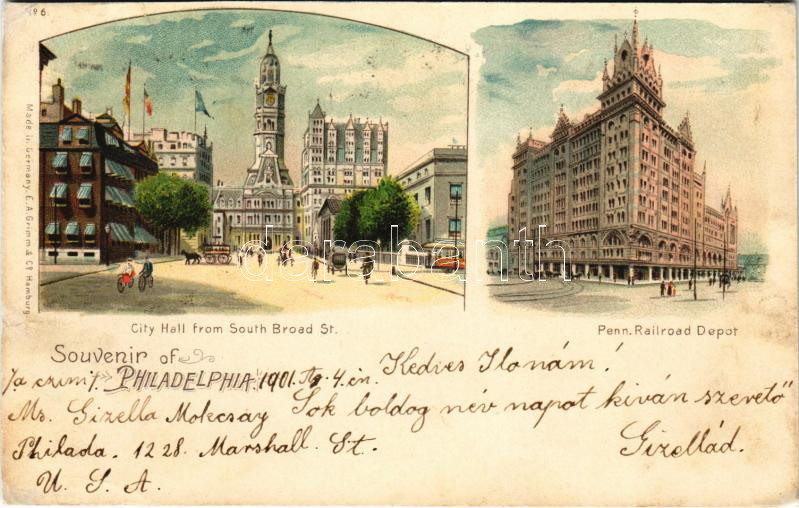 No 6.
Made in Germany, E.A. Grimm & Co Hamburg.
darabanth
City Hall from South Broad St.
Penn. Railroad Depot
Souvenir of
PHILADELPHIA
1901. 4.én.
Kedves Ilonám!
Ms. Gizella Mokcsay
Sok boldog név napot kiván szerető
Philada. 1228. Marshall. St.
Gizellád.
U. S. A.